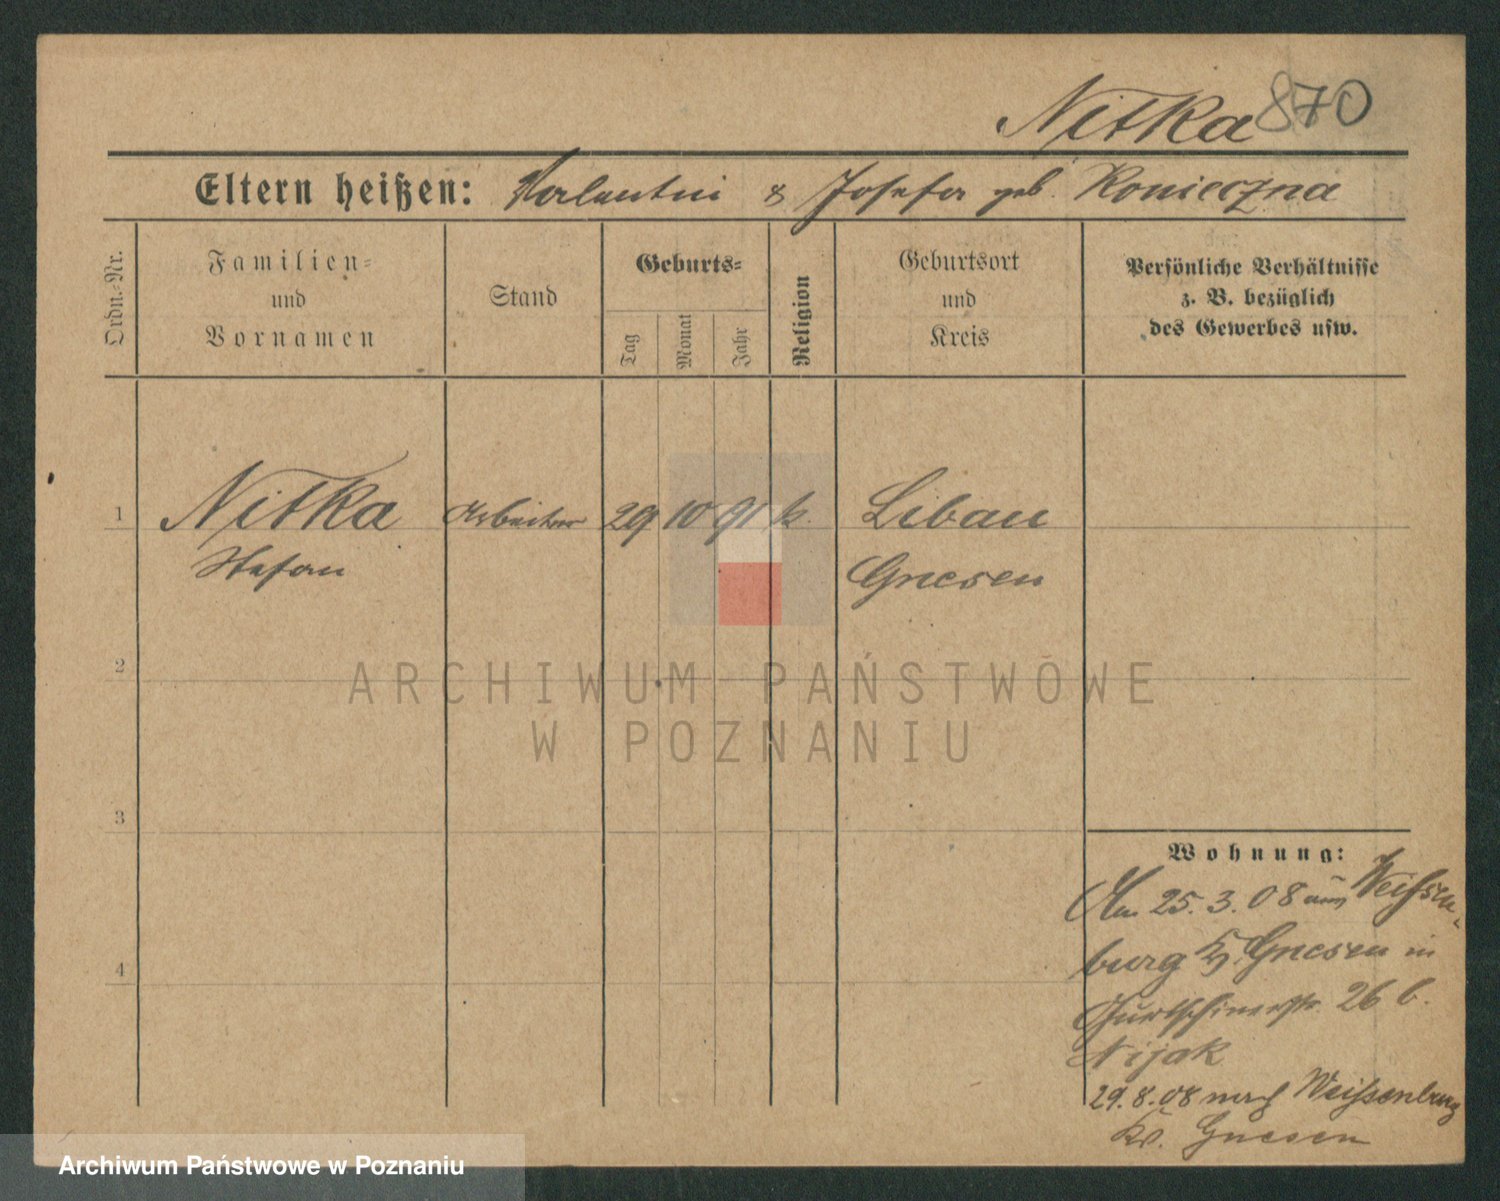 Nitka 870
Eltern heißen: Valentin & Josefa geb. Konieczna
Ordn.-Nr.
Familien-
und
Vornamen
Stand
Geburts-
Tag
Monat
Jahr
Religion
Geburtsort
und
Kreis
Persönliche Verhältnisse
z. B. bezüglich
des Gewerbes usw.
1 Nitka Arbeiter 29 10 91 k. Libau
Stefan Gnesen
2
ARCHIWUM PAŃSTWOWE
W POZNANIU
3
Wohnung:
Am 25.3.08 aus Weissen-
burg Kr. Gnesen in
4
Gurtschinerstr. 26 b.
Nijak
29.8.08 nach Weissenburg
Kr. Gnesen
Archiwum Państwowe w Poznaniu